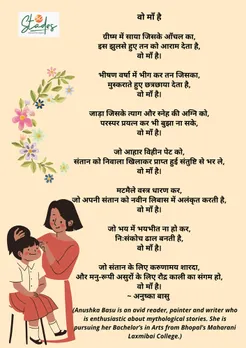 Slados
वो माँ है
ग्रीष्म में साया जिसके आँचल का,
इस झुलसे हुए तन को आराम देता है,
वो माँ है।
भीषण वर्षा में भीग कर तन जिसका,
मुस्कराते हुए छत्रछाया देता है,
वो माँ है।
जाड़ा जिसके त्याग और स्नेह की अग्नि को,
परस्पर प्रयत्न कर भी बुझा ना सके,
वो माँ है।
जो आहार विहीन पेट को,
संतान को निवाला खिलाकर प्राप्त हुई संतुष्टि से भर ले,
वो माँ है।
मटमैले वस्त्र धारण कर,
जो अपनी संतान को नवीन लिबास में अलंकृत करती है,
वो माँ है।
जो भय में भयभीत ना हो कर,
निःसंकोच ढाल बनती है,
वो माँ है।
जो संतान के लिए करुणामय शारदा,
और मनु-रूपी असुरों के लिए रौद्र काली का संगम हो,
वो माँ है।
~ अनुष्का बासु
(Anushka Basu is an avid reader, painter and writer who
is enthusiastic about mythological stories. She is
pursuing her Bachelor's in Arts from Bhopal's Maharani
Laxmibai College.)